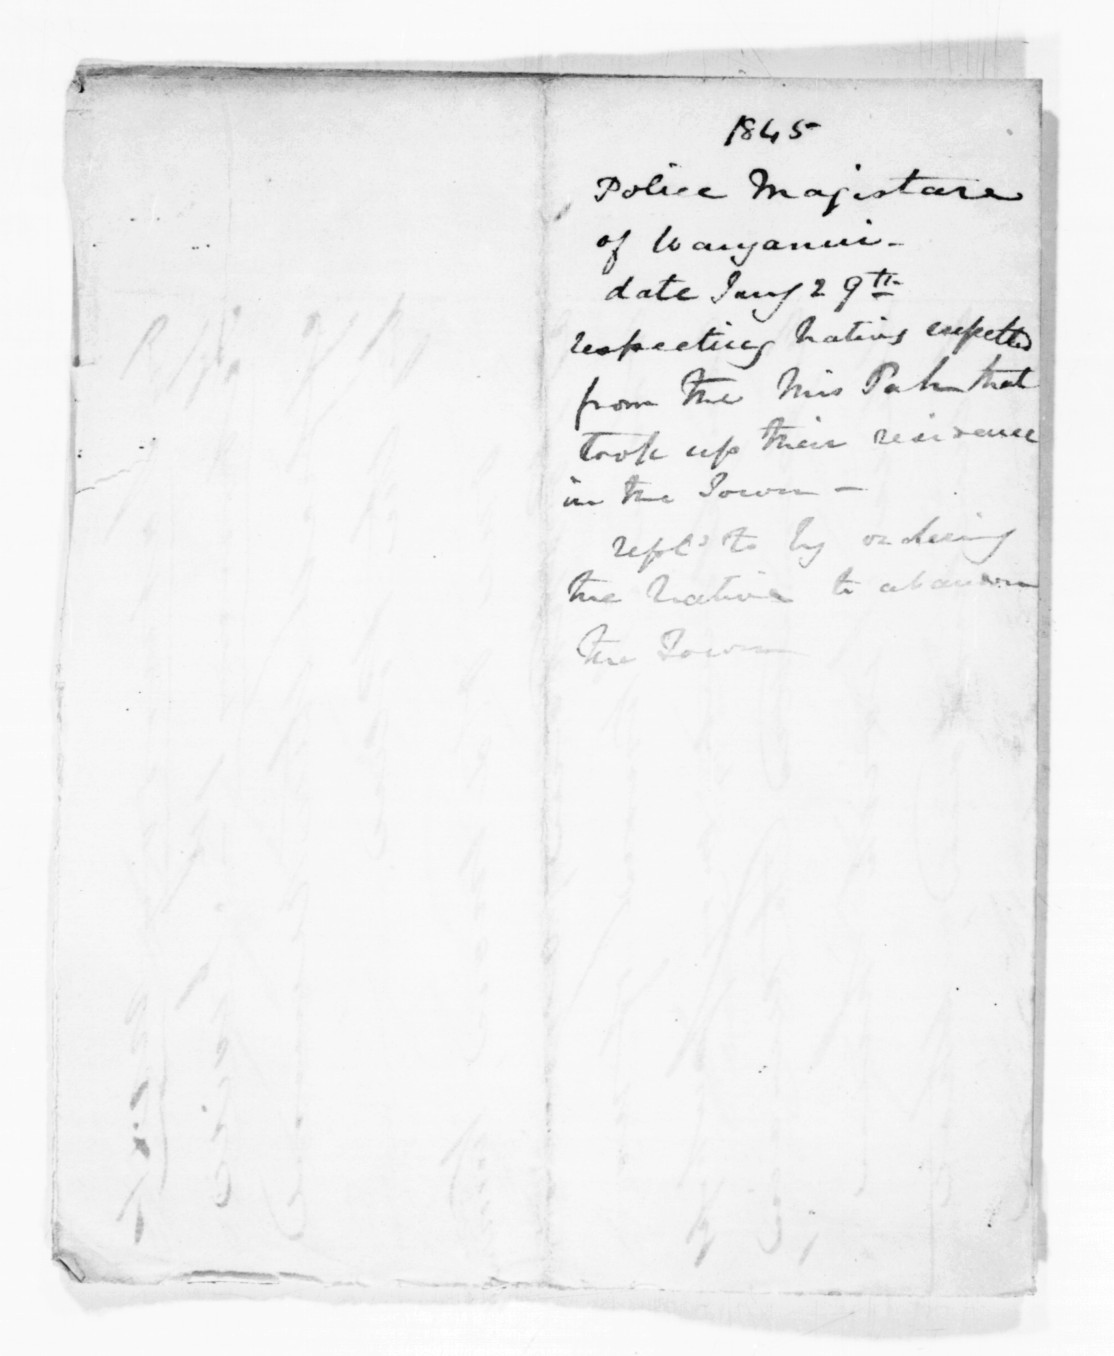 1845
Police Majistare
of Wanganui -
date Jany 29th
respecting Natives expelled
from the Pah that
took up their residence
in the Town -
repld to by ordering
the Natives to abandon
the Town